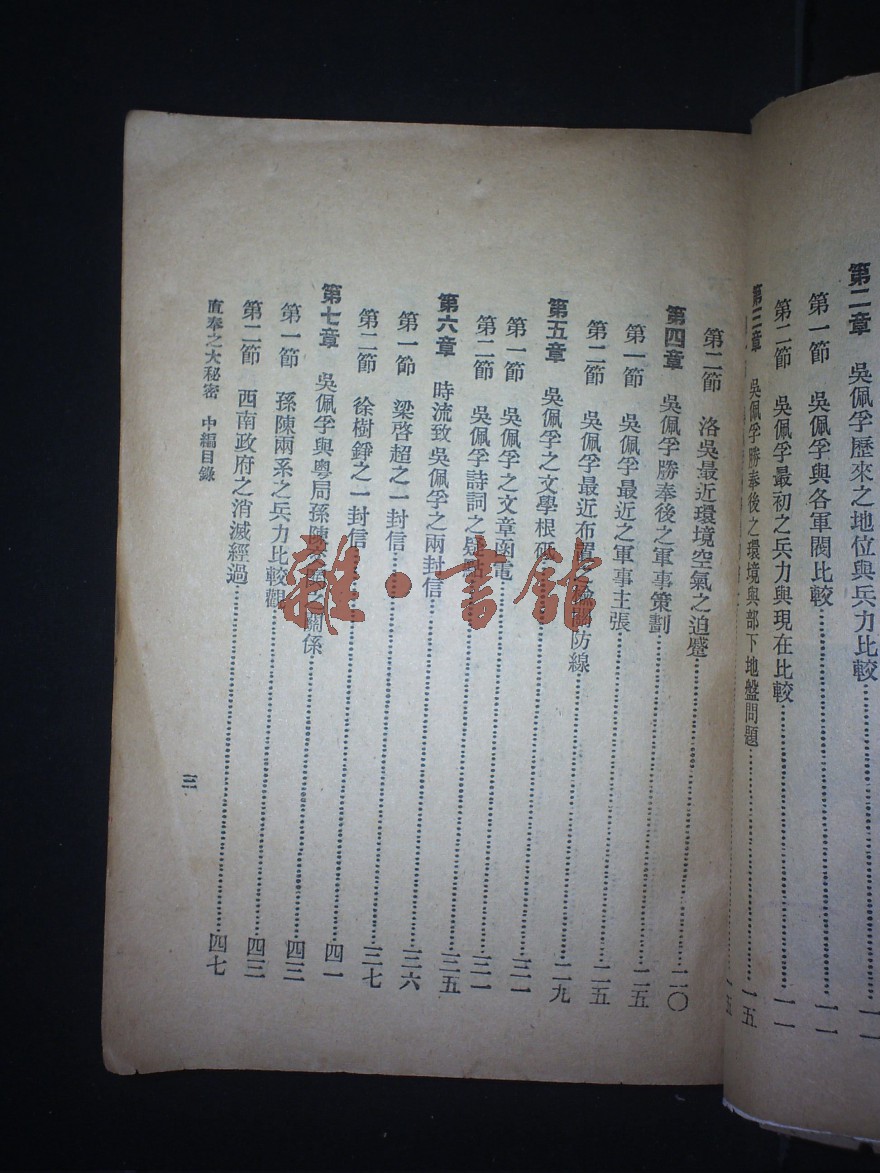 第二章　吳佩孚歷來之地位與兵力比較……一一
第一節　吳佩孚與各軍閥比較……一一
第二節　吳佩孚最初之兵力與現在比較……一一
第三章　吳佩孚勝奉後之環境與部下地盤問題……一五
一五
第二節　洛吳最近環境空氣之迫蹙……二〇
第四章　吳佩孚勝奉後之軍事策劃……二五
第一節　吳佩孚最近之軍事主張……二五
第二節　吳佩孚最近布置之防線……二九
第五章　吳佩孚之文學根……三一
第一節　吳佩孚之文章函電……三一
第二節　吳佩孚詩詞之疑點……三五
第六章　時流致吳佩孚之兩封信……三六
第一節　梁啓超之一封信……三七
第二節　徐樹錚之一封信……四一
第七章　吳佩孚與粵局孫陳之關係……四三
第一節　孫陳兩系之兵力比較觀……四三
第二節　西南政府之消滅經過……四七
直奉之大秘密　中編目錄
三
雜·書館